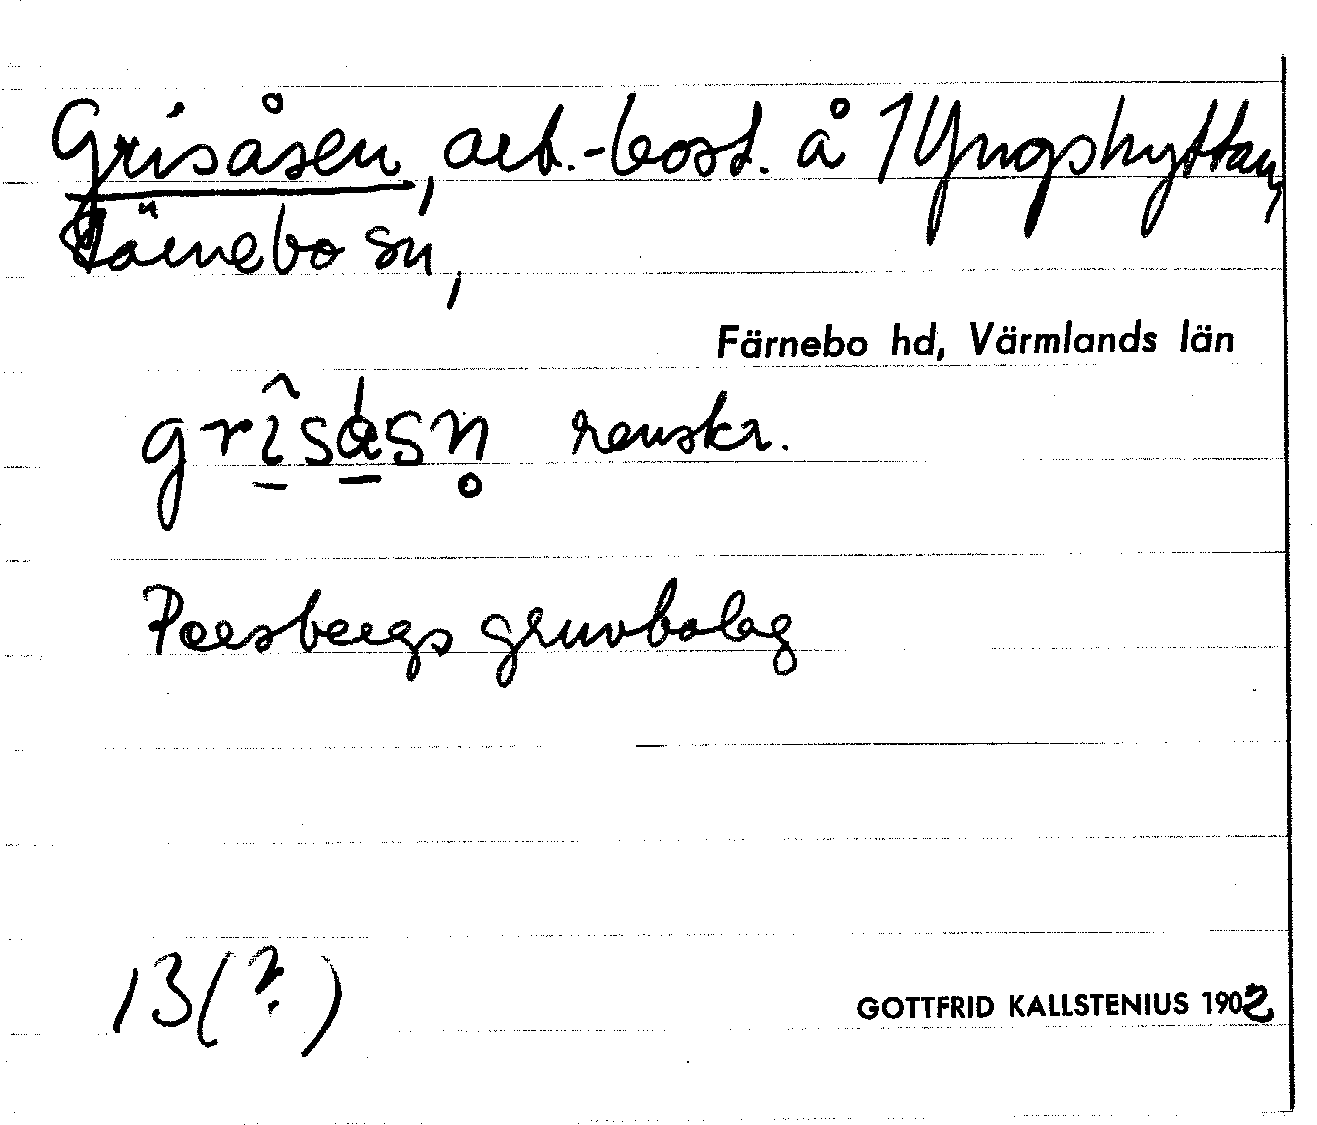 Grisåsen, arb.-bost. å 1 Yngshyttan,
Färnebo sn,
Färnebo hd, Värmlands län
renskr.
Persbergs gruvbolag
13(?)
GOTTFRID KALLSTENIUS 1902